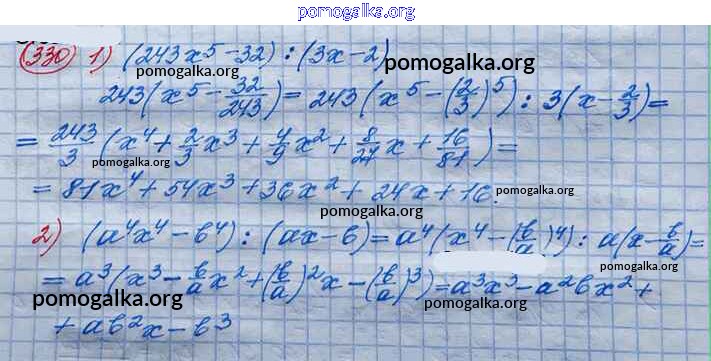 pomogalka.org
330 1) (243x⁵-32) : (3x-2)
pomogalka.org pomogalka.org
243(x⁵ - 32/243) = 243(x⁵ - (2/3)⁵) : 3(x - 2/3) =
= 243/3 (x⁴ + 2/3 x³ + 4/9 x² + 8/27 x + 16/81) =
pomogalka.org pomogalka.org
= 81x⁴ + 54x³ + 36x² + 24x + 16.
pomogalka.org
2) (a⁴x⁴ - b⁴) : (ax - b) = a⁴(x⁴ - (b/a)⁴) : a(x - b/a) =
pomogalka.org
= a³(x³ - b/a x² + (b/a)² x - (b/a)³) = a³x³ - a²bx² +
pomogalka.org pomogalka.org
+ ab²x - b³